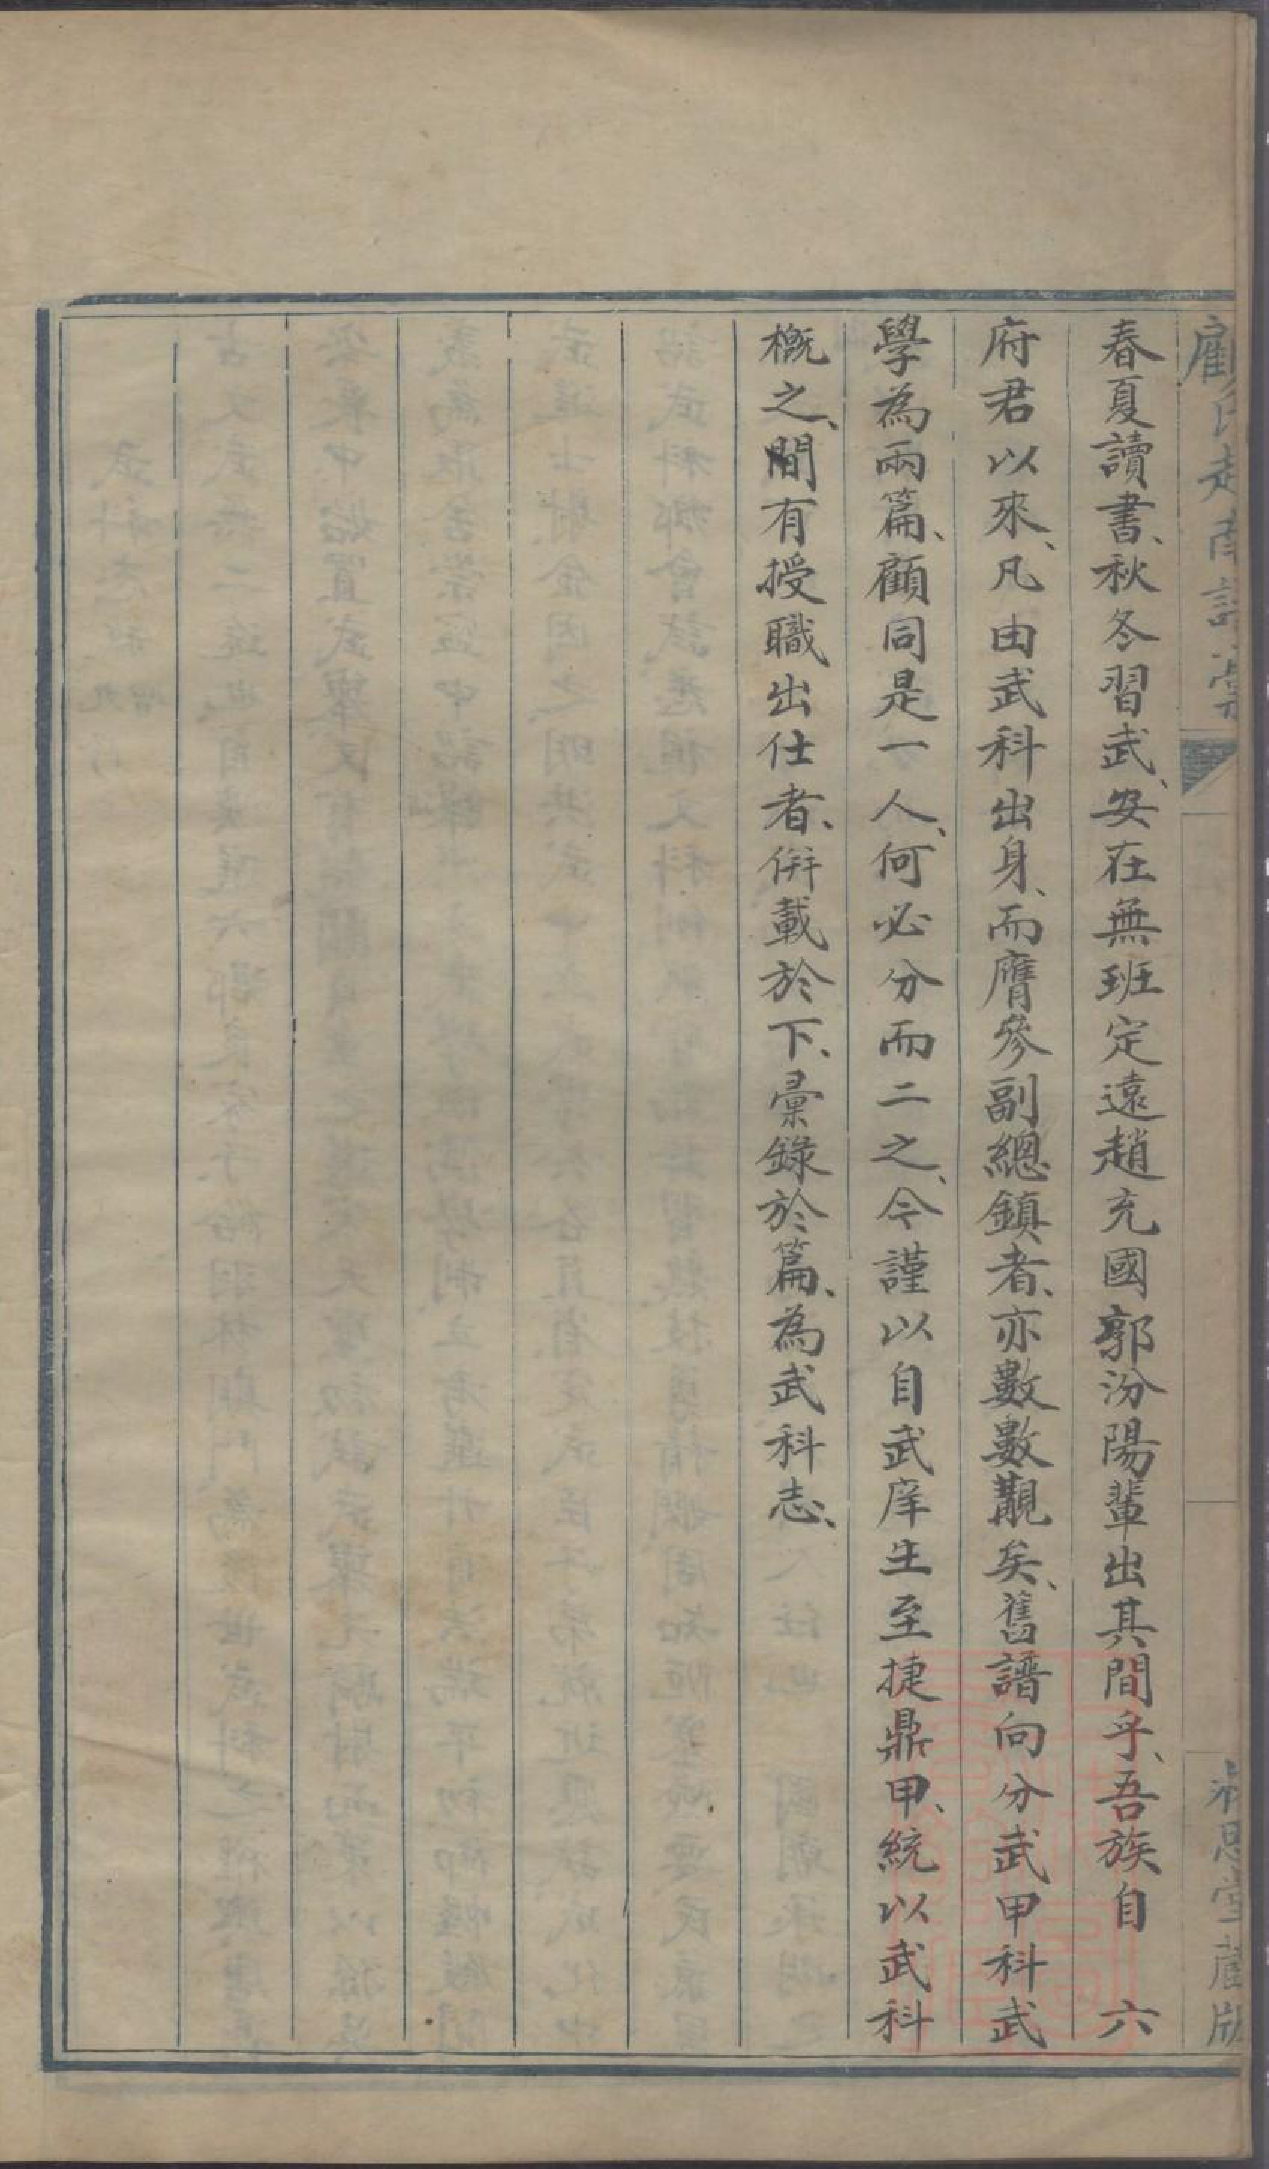 春夏讀書、秋冬習武、安在無班定遠趙充國郭汾陽輩出其間乎、吾族自　六
府君以來、凡由武科出身、而膺參副總鎮者、亦數數覯矣、舊譜向分武甲科武
學為兩篇、顧同是一人、何必分而二之、今謹以自武庠生至捷鼎甲、統以武科
概之、間有授職出仕者、併載於下、彙錄於篇、為武科志、